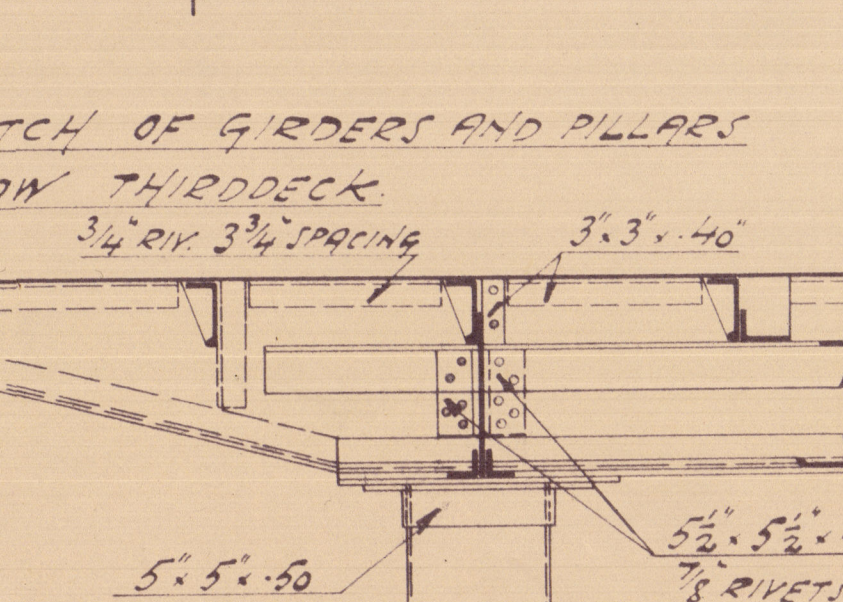 TCH OF GIRDERS AND PILLARS
OW THIRDDECK.
3/4" RIV. 3 3/4" SPACING
3" x 3" x .40"
5 1/2" x 5 1/2" x
7/8" RIVETS
5" x 5" x .50